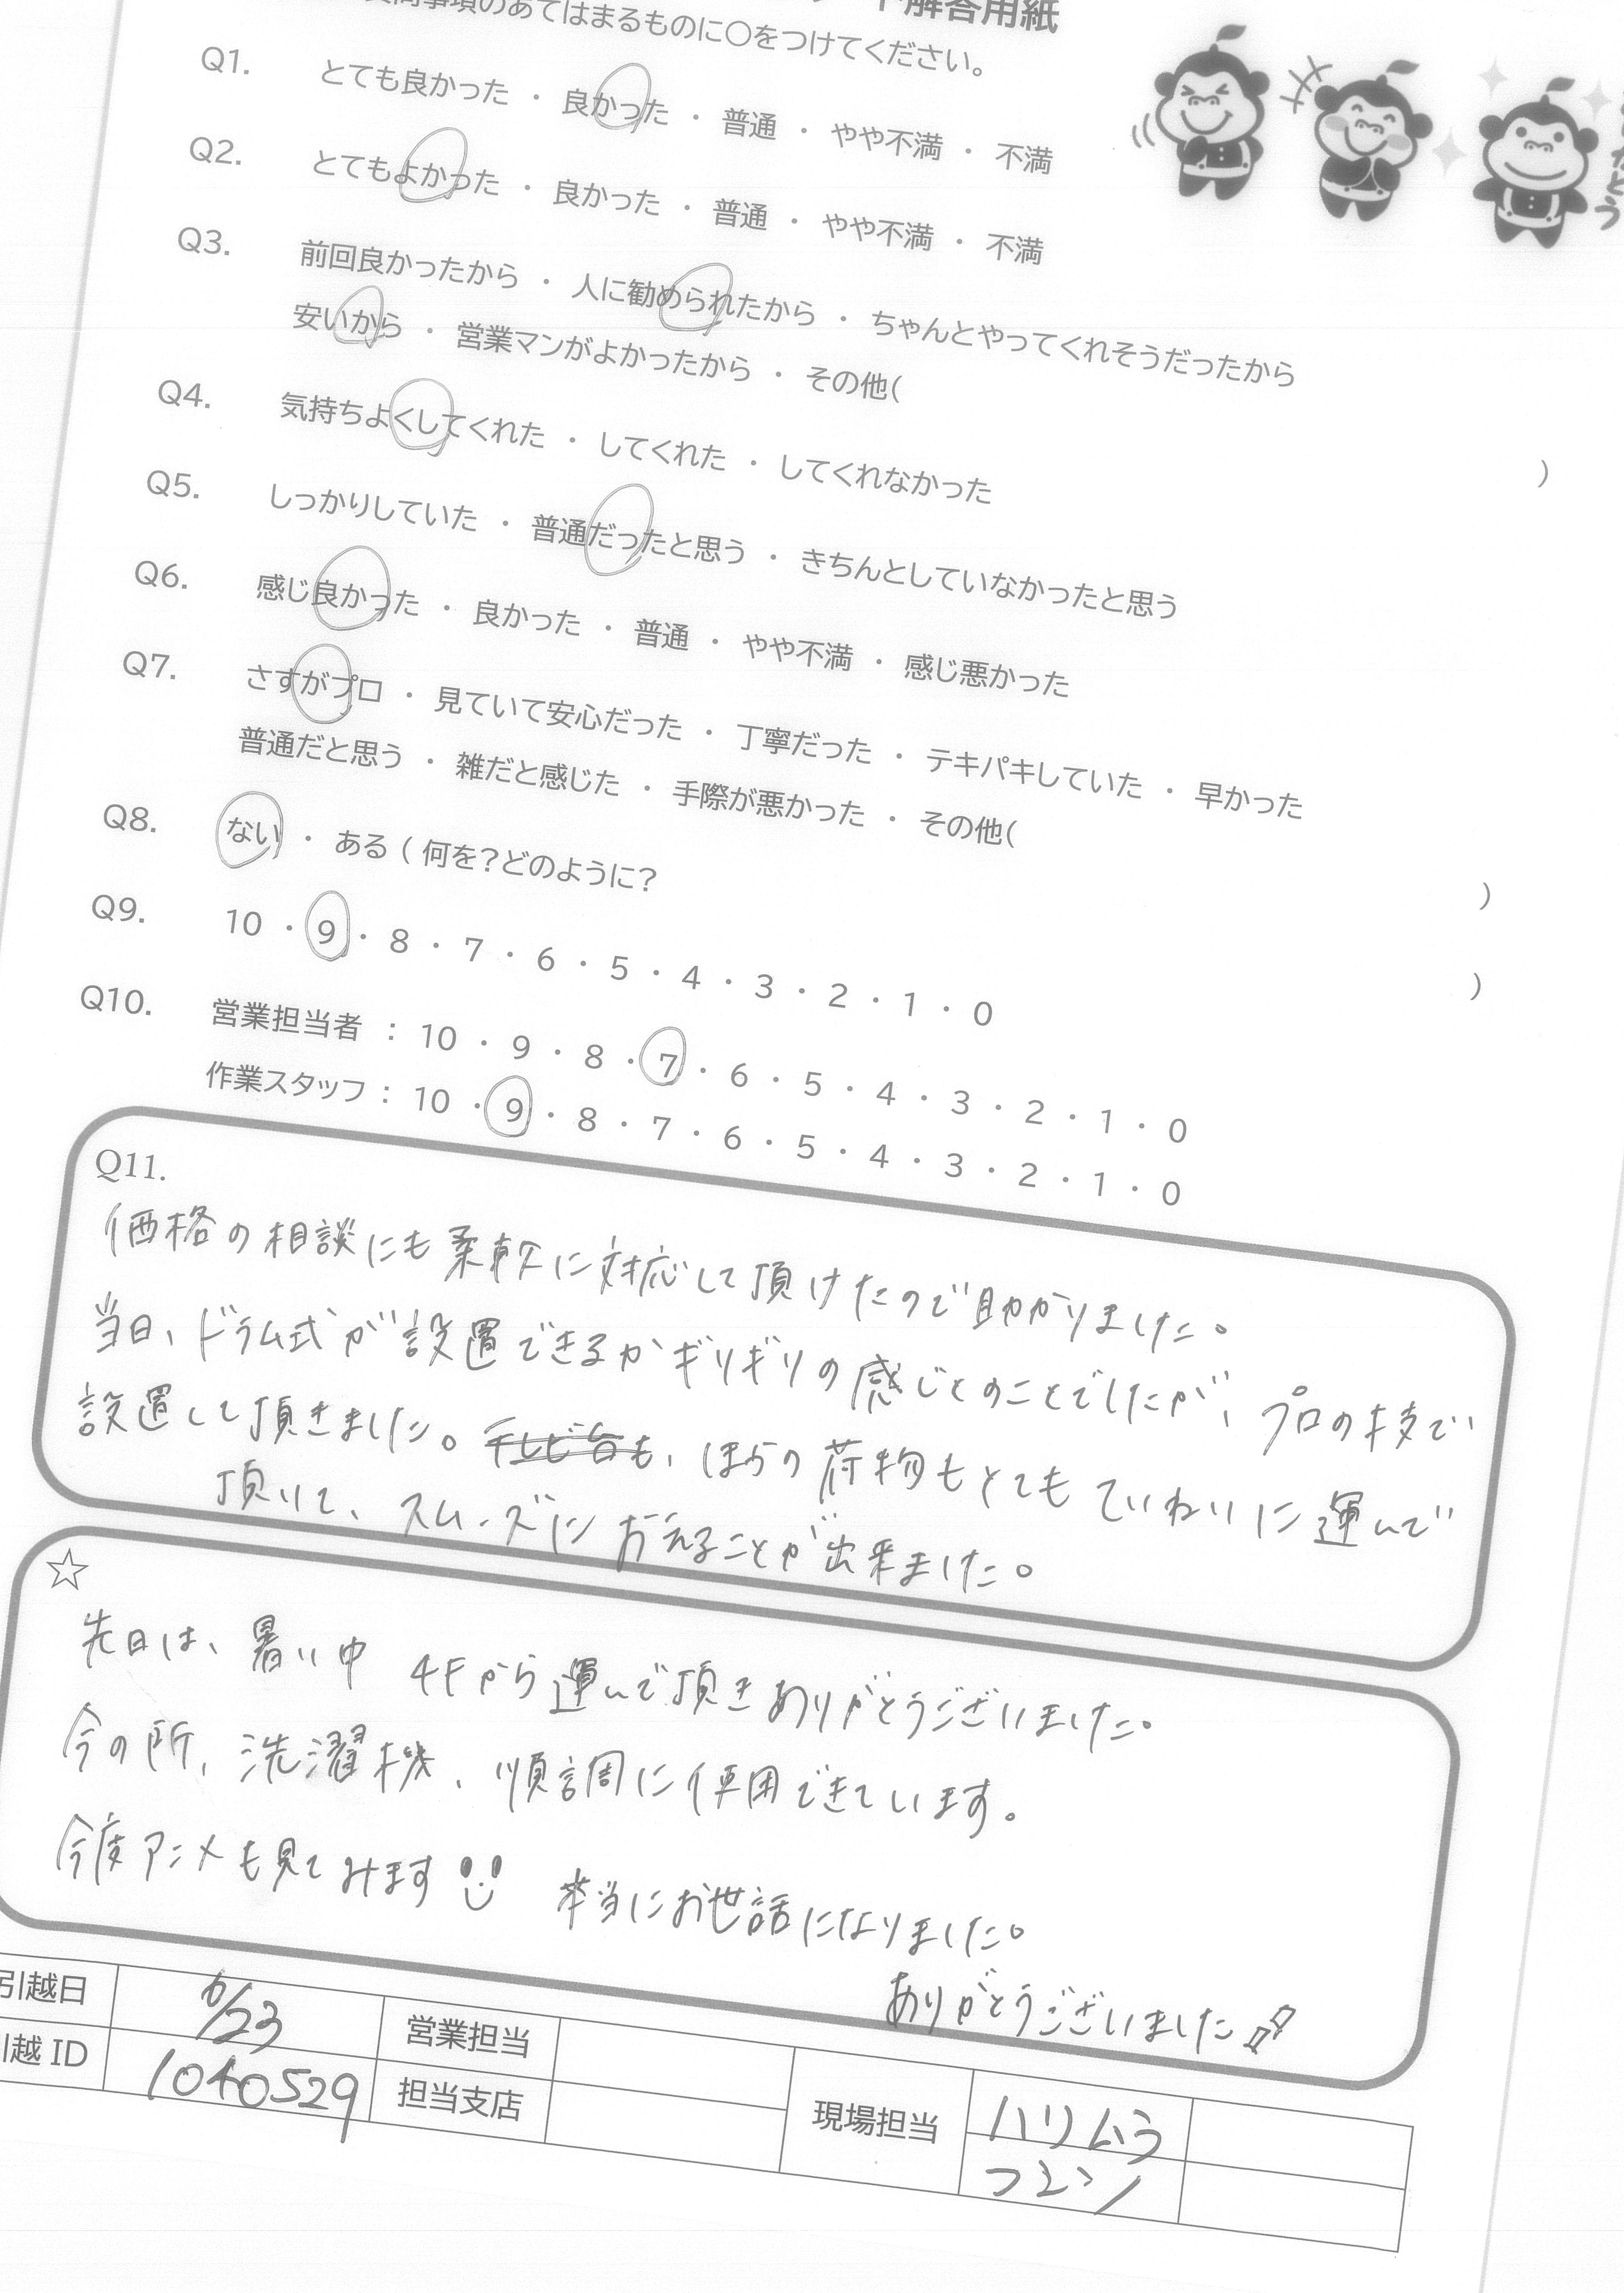 解答用紙
事項のあてはまるものに○をつけてください。
Q1. とても良かった ・ 良かった ・ 普通 ・ やや不満 ・ 不満
Q2. とてもよかった ・ 良かった ・ 普通 ・ やや不満 ・ 不満
Q3. 前回良かったから ・ 人に勧められたから ・ ちゃんとやってくれそうだったから
安いから ・ 営業マンがよかったから ・ その他( )
Q4. 気持ちよくしてくれた ・ してくれた ・ してくれなかった
Q5. しっかりしていた ・ 普通だったと思う ・ きちんとしていなかったと思う
Q6. 感じ良かった ・ 良かった ・ 普通 ・ やや不満 ・ 感じ悪かった
Q7. さすがプロ ・ 見ていて安心だった ・ 丁寧だった ・ テキパキしていた ・ 早かった
普通だと思う ・ 雑だと感じた ・ 手際が悪かった ・ その他( )
Q8. ない ・ ある ( 何を?どのように? )
Q9. 10 ・ 9 ・ 8 ・ 7 ・ 6 ・ 5 ・ 4 ・ 3 ・ 2 ・ 1 ・ 0
Q10. 営業担当者 : 10 ・ 9 ・ 8 ・ 7 ・ 6 ・ 5 ・ 4 ・ 3 ・ 2 ・ 1 ・ 0
作業スタッフ : 10 ・ 9 ・ 8 ・ 7 ・ 6 ・ 5 ・ 4 ・ 3 ・ 2 ・ 1 ・ 0
Q11.
価格の相談にも柔軟に対応して頂けたので助かりました。
当日、ドラム式が設置できるかギリギリの感じとのことでしたが、プロの技で
設置して頂きました。テレビ台も、ほかの荷物もとてもていねいに運んで
頂いて、スムーズにおえることが出来ました。
☆
先日は、暑い中 4Fから運んで頂きありがとうございました。
今の所、洗濯機、順調に使用できています。
今度アニメも見てみます 本当にお世話になりました。
ありがとうございました
引越日 6/23 営業担当
越 ID 1040529 担当支店
現場担当 ハリムラ